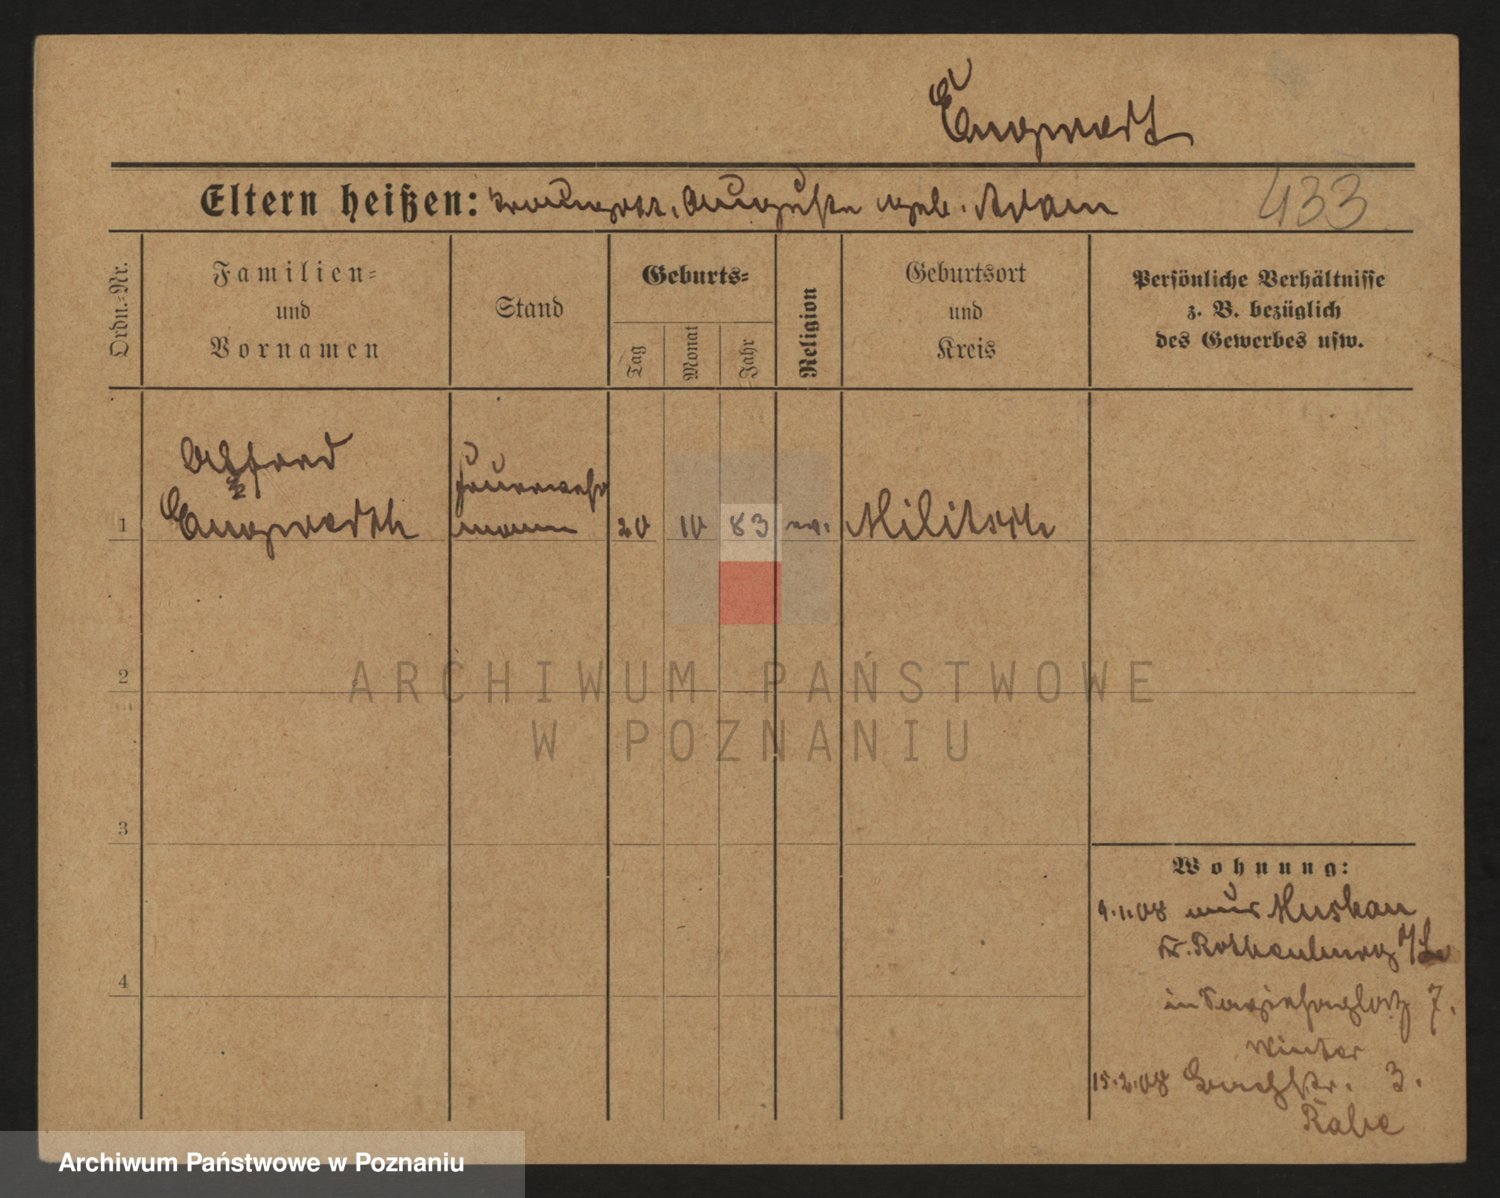 Engwert
433
Eltern heißen: Traugott, Auguste geb. Adam
Ordn.-Nr.
Familien-
und
Vornamen
Stand
Geburts-
Tag
Monat
Jahr
Religion
Geburtsort
und
Kreis
Persönliche Verhältnisse
z. B. bezüglich
des Gewerbes usw.
Alfred
Feuerwehr
1 Engwerth mann 20 10 83 ev. Militsch
2
3
4
Wohnung:
9.1.08 aus Muskau
Kr. Rothenburg
in 7.
Winter
15.2.08 3.
Rabe
ARCHIWUM PAŃSTWOWE
W POZNANIU
Archiwum Państwowe w Poznaniu